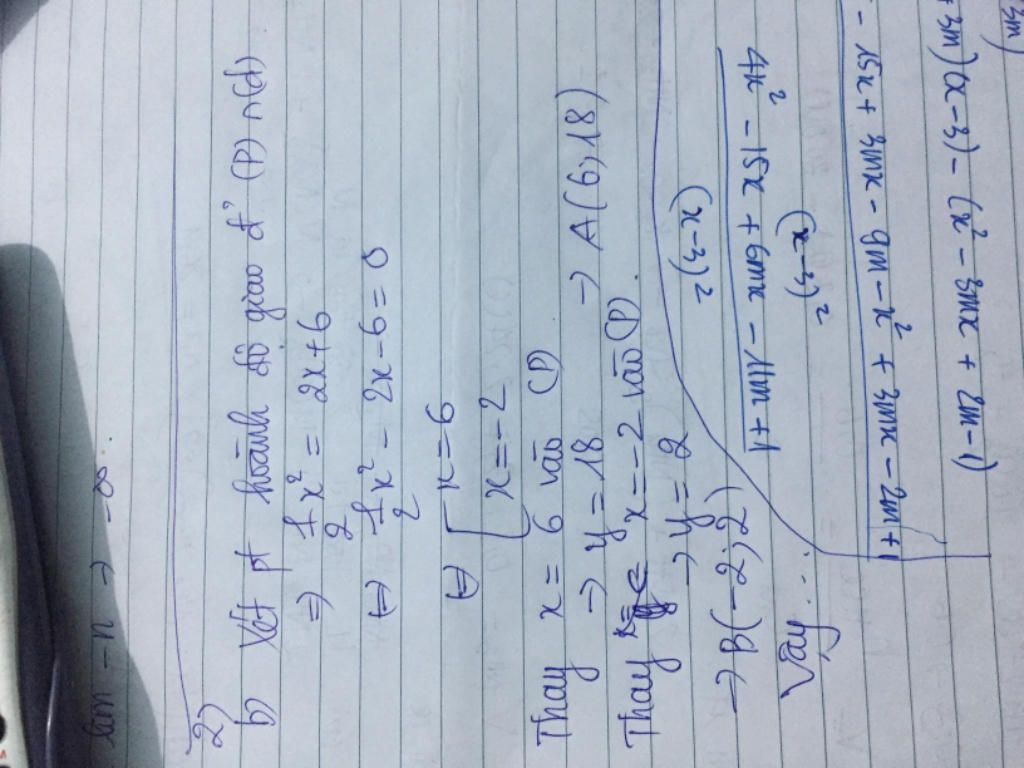 lim - n → -∞
2)
b) Xét pt hoành độ giao đ' (P) ∩ (d)
⇒ 1/2 x² = 2x + 6
⇔ 1/2 x² - 2x - 6 = 0
⇔ [ x = 6
x = -2
Thay x = 6 vào (P)
→ y = 18 → A(6;18)
Thay x = -2 vào (P).
→ y = 2
→ B(-2;2)
Vậy...
3m)
+ 3m)(x-3) - (x² - 3mx + 2m - 1)
- 15x + 3mx - 9m - x² + 3mx - 2m + 1
(x-3)²
4x² - 15x + 6mx - 11m + 1
(x-3)²